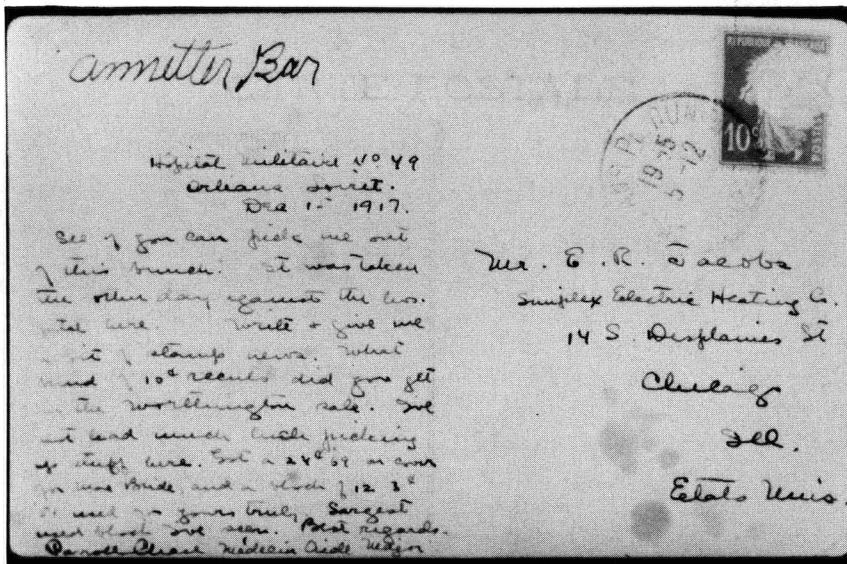 Annetter Bar
10c
19-15
5-12
Hopital Militaire No 49
Orleans Loiret.
Dec 1st 1917.
See if you can pick me out
of this bunch. It was taken
the other day against the hos-
pital here. Write & give me
a bit of stamp news. What
kind of 10¢ results did you get
in the Worthington sale. I've
not had much luck picking
up stuff here. Got a 24¢ 69 on cover
for Mac Bride, and a block of 12 3¢
used for yours truly. Largest
used block I've seen. Best regards.
Carroll Chase Médecin Aide Major
Mr. E. R. Jacobs
Simplex Electric Heating Co.
14 S. Desplaines St
Chicago
Ill.
Etats Unis.